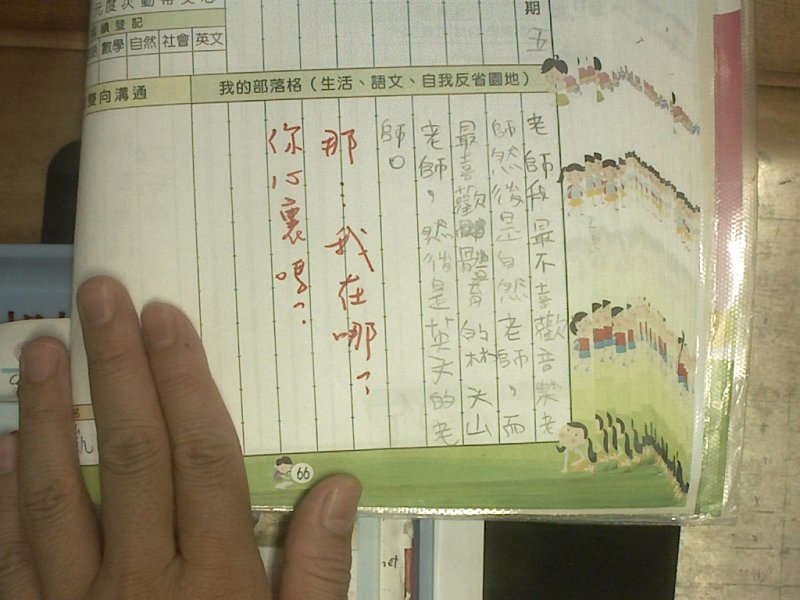 期
五
績登記
數學 自然 社會 英文
雙向溝通
我的部落格（生活、語文、自我反省園地）
老師我最不喜歡音樂老
師然後是自然老師，而
最喜歡體育的林天山
老師，然後是英文的老
師。
那…我在哪？
你心裏嗎？
66